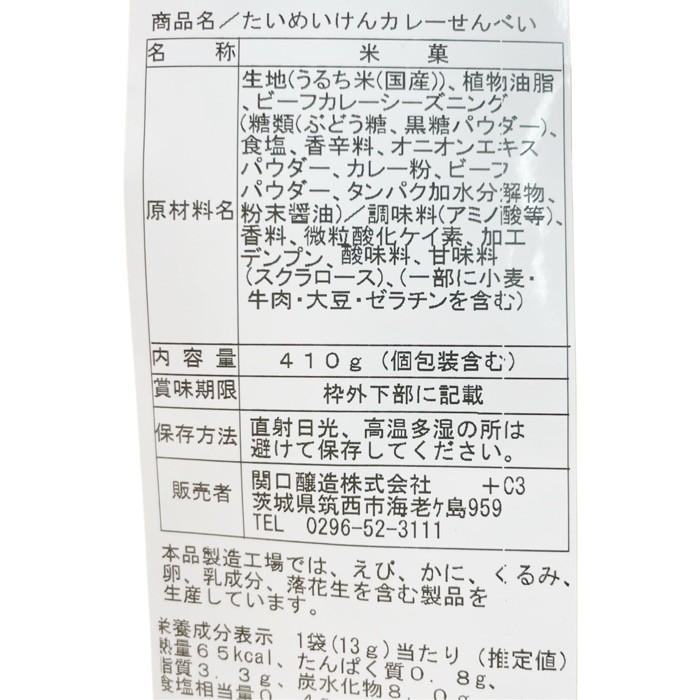 商品名/たいめいけんカレーせんべい
名　称　米　菓
原材料名
生地(うるち米(国産))、植物油脂
、ビーフカレーシーズニング
(糖類(ぶどう糖、黒糖パウダー)、
食塩、香辛料、オニオンエキス
パウダー、カレー粉、ビーフ
パウダー、タンパク加水分解物、
粉末醤油)/調味料(アミノ酸等)、
香料、微粒酸化ケイ素、加工
デンプン、酸味料、甘味料
(スクラロース)、(一部に小麦・
牛肉・大豆・ゼラチンを含む)
内容量　410g (個包装含む)
賞味期限　枠外下部に記載
保存方法
直射日光、高温多湿の所は
避けて保存してください。
販売者
関口醸造株式会社　+C3
茨城県筑西市海老ヶ島959
TEL 0296-52-3111
本品製造工場では、えび、かに、くるみ、
卵、乳成分、落花生を含む製品を
生産しています。
栄養成分表示　1袋(13g)当たり (推定値)
熱量65kcal、たんぱく質0.8g、
脂質3.3g、炭水化物8.0g、
食塩相当量0.